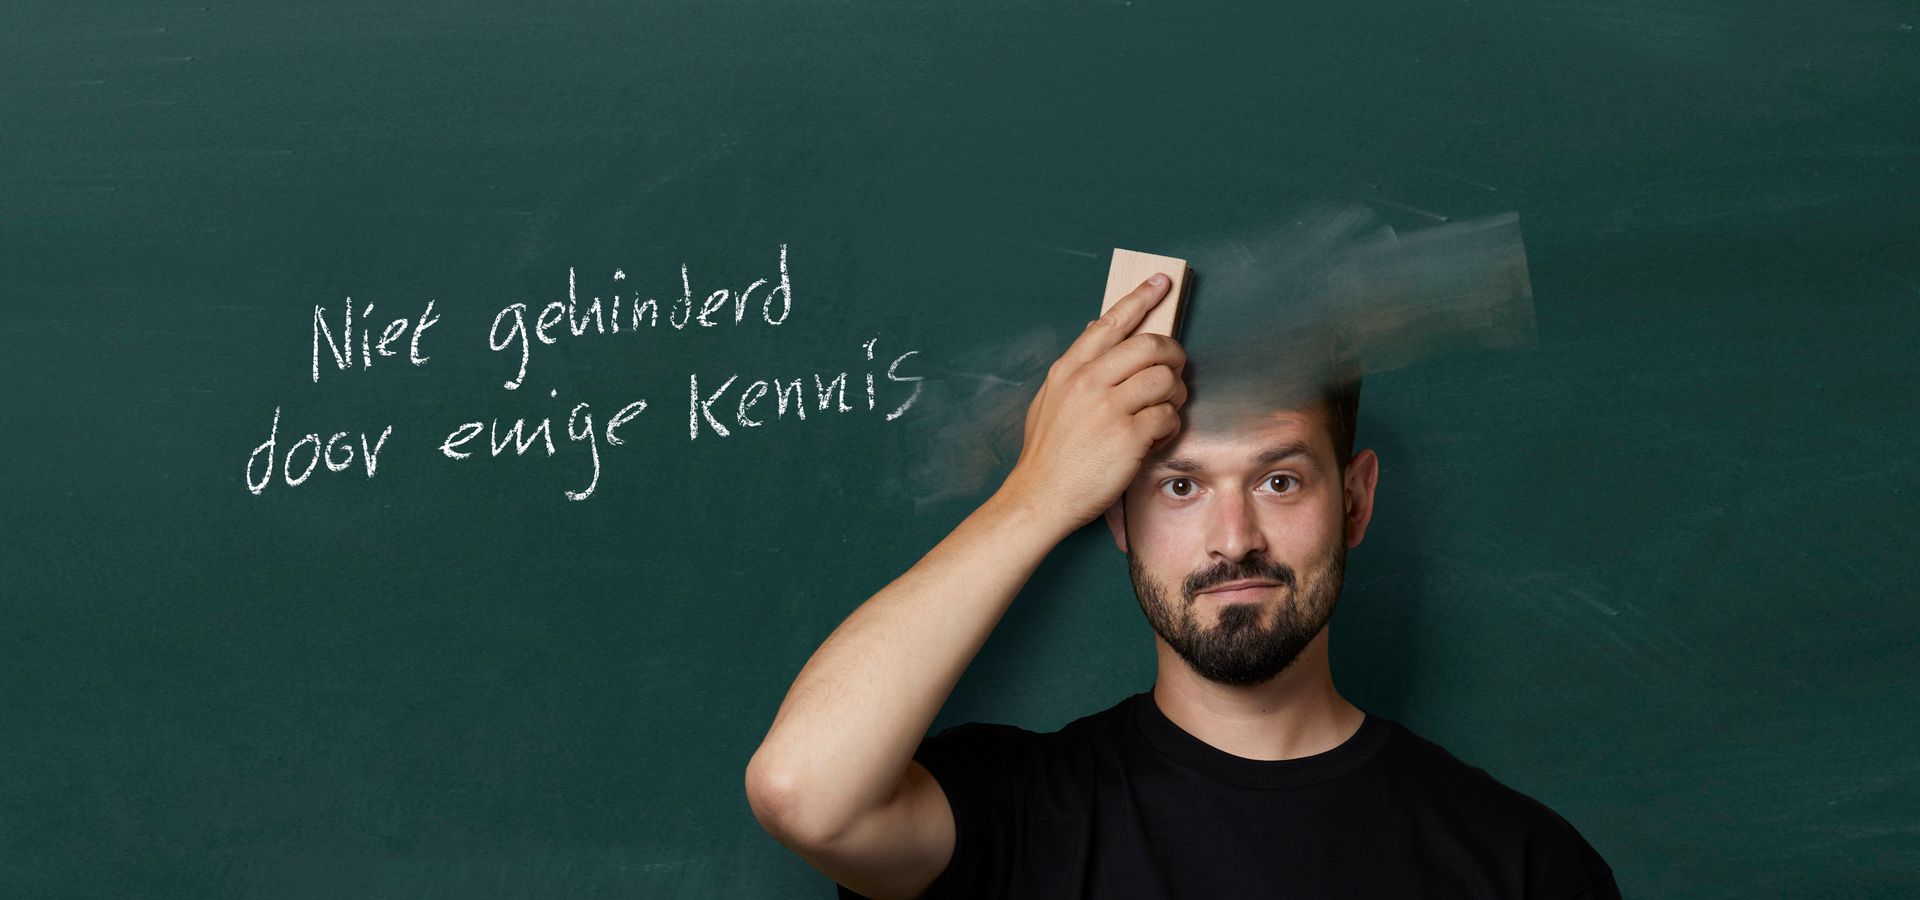 Niet gehinderd
door enige kennis